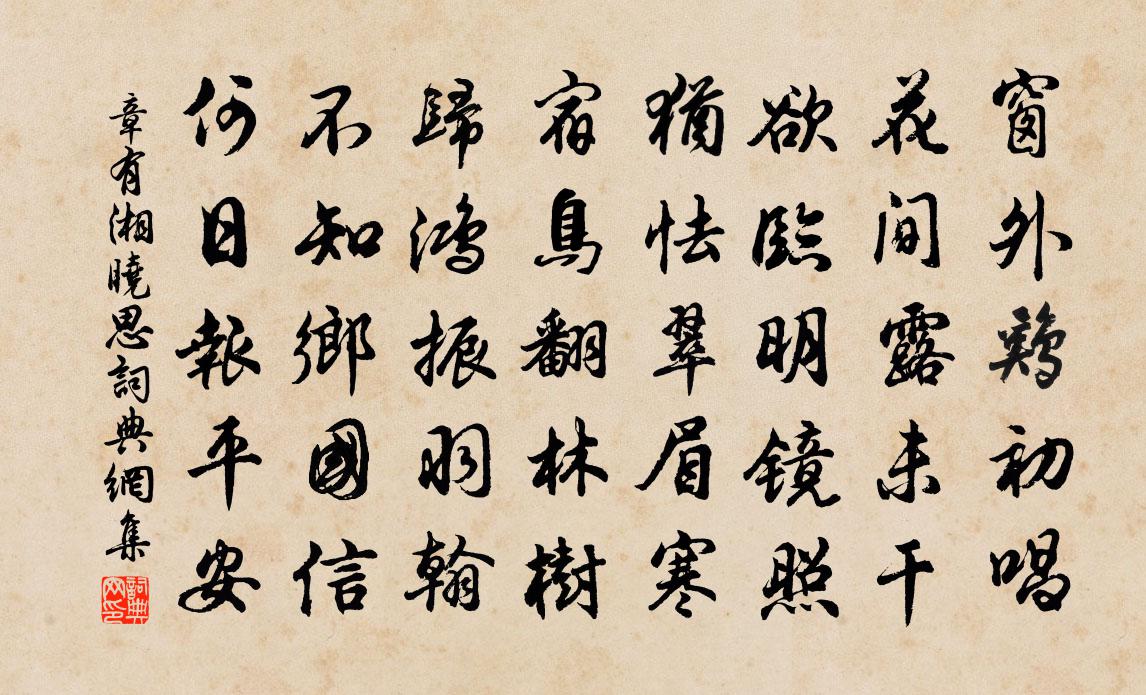 窗外鷄初唱
花间露未干
欲臨明镜照
猶怯翠眉寒
宿鳥翻林樹
歸鸿振羽翰
不知鄉國信
何日報平安
章有湘曉思詞典網集
詞典网印